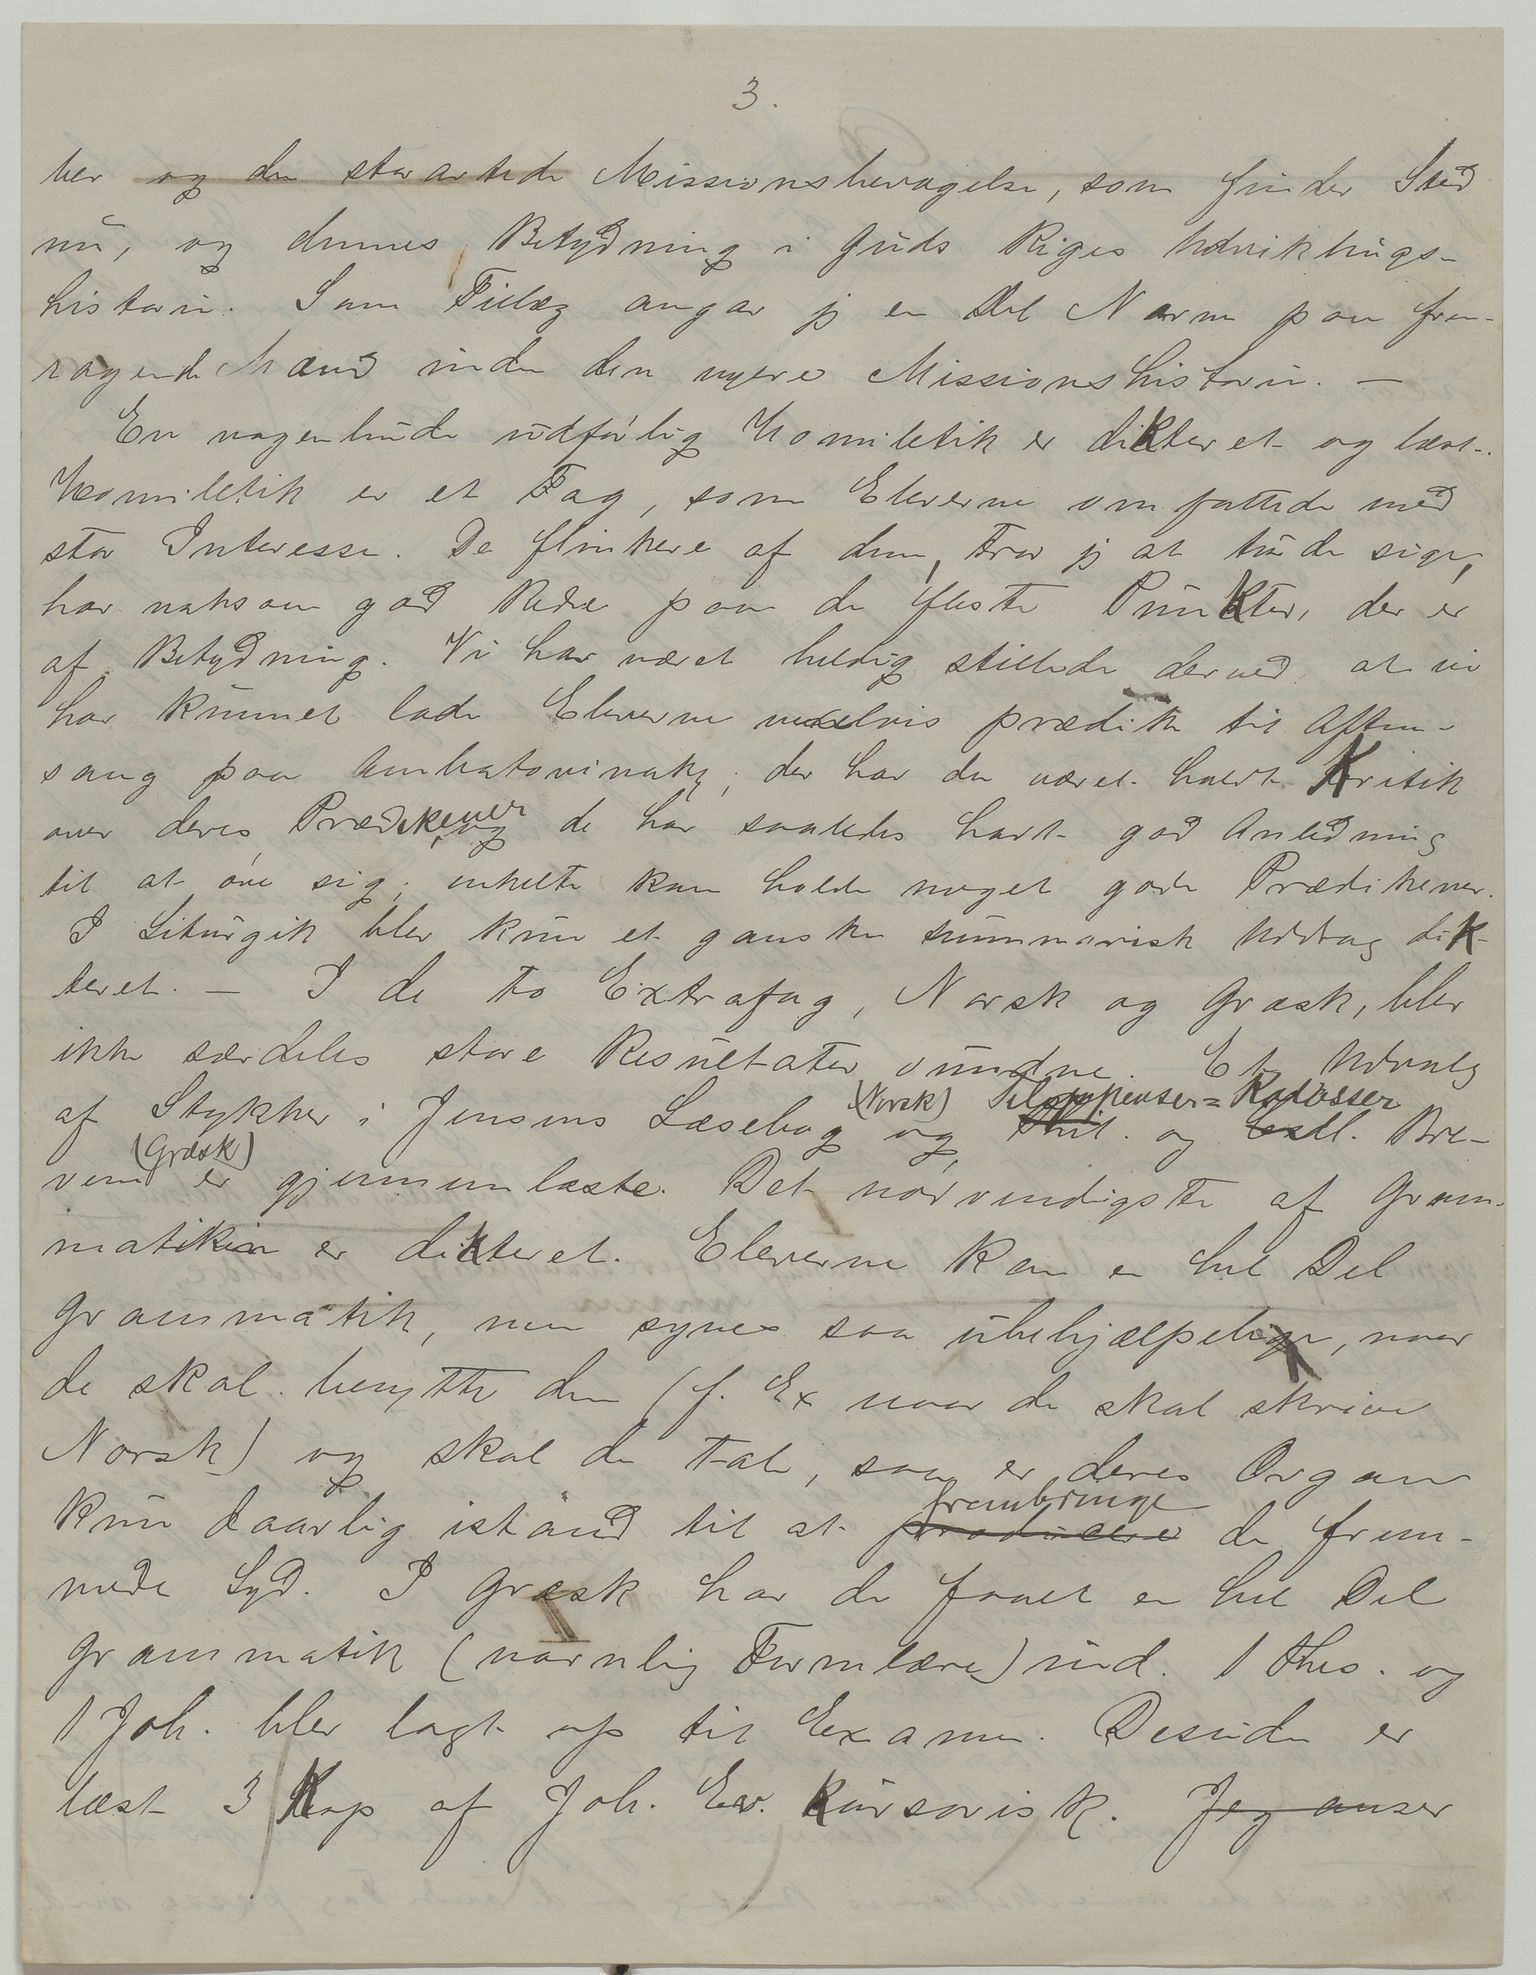 3.
ber og den storartede Missionsbevægelse, som finder Sted
nu, og dennes Betydning i Guds Riges Udviklings-
historie. Som Tillæg angav jeg en Del Navne paa frem-
ragende Mænd inden den nyere Missionshistorie. —
En nogenlunde udførlig Homiletik er dikteret og læst.
Homiletik er et Fag, som Eleverne omfattede med
stor Interesse. De flinkere af dem, tror jeg at turde sige,
har noksaa god Rede paa de fleste Punkter, der er
af Betydning. Vi har været heldig stillede derved, at vi
har kunnet lade Eleverne vexelvis prædike til Aften-
sang paa Ambatovinaky; der har da været holdt Kritik
over deres Prædikener, og de har saaledes havt god Anledning
til at øve sig; enkelte kan holde noget gode Prædikener.
I Liturgik blev kun et ganske summarisk Uddrag dik-
teret. — I de to Extrafag, Norsk og Græsk, blev
ikke særdeles store Resultater vundne. Et Udvalg
(Norsk) Filippenser= Kolosser
af Stykker i Jensens Læsebog og Phil. og Coll. Bre-
(Græsk)
vene er gjennemlæste. Det nødvendigste af Gram-
matiken er dikteret. Eleverne kan en hel Del
Grammatik, men synes saa ubehjælpelige, naar
de skal benytte den (f. Ex naar de skal skrive
Norsk) og skal de tale, saa er deres Organ
frembringe
kun daarlig istand til at producere de frem-
mede Lyd. I Græsk har de faaet en hel Del
Grammatik (navnlig Formlære) ind. 1 Thes. og
1 Joh. blev lagt op til Examen. Desuden er
læst 3 Kap af Joh. Ev. kursorisk. Jeg anser